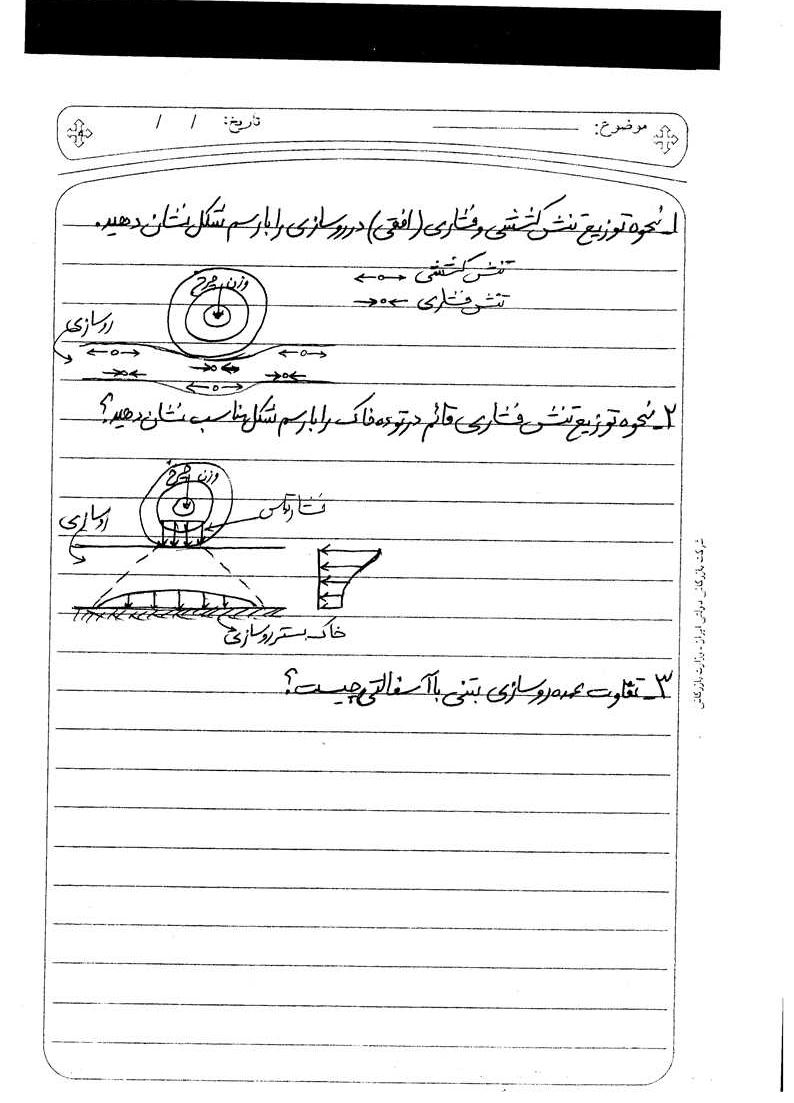 موضوع: تاریخ: / /
۱ـ نحوه توزیع تنش کششی و فشاری (افقی) در روسازی را با رسم شکل نشان دهید.
تنش کششی
تنش فشاری
وزن چرخ
روسازی
۲ـ نحوه توزیع تنش فشاری قائم در توده خاک را با رسم شکل مناسب نشان دهید؟
وزن چرخ
فشار تماس
روسازی
خاک بستر روسازی
۳ـ تفاوت عمده روسازی بتنی با آسفالتی چیست؟
شرکت بازرگانی دولتی ایران - وزارت بازرگانی